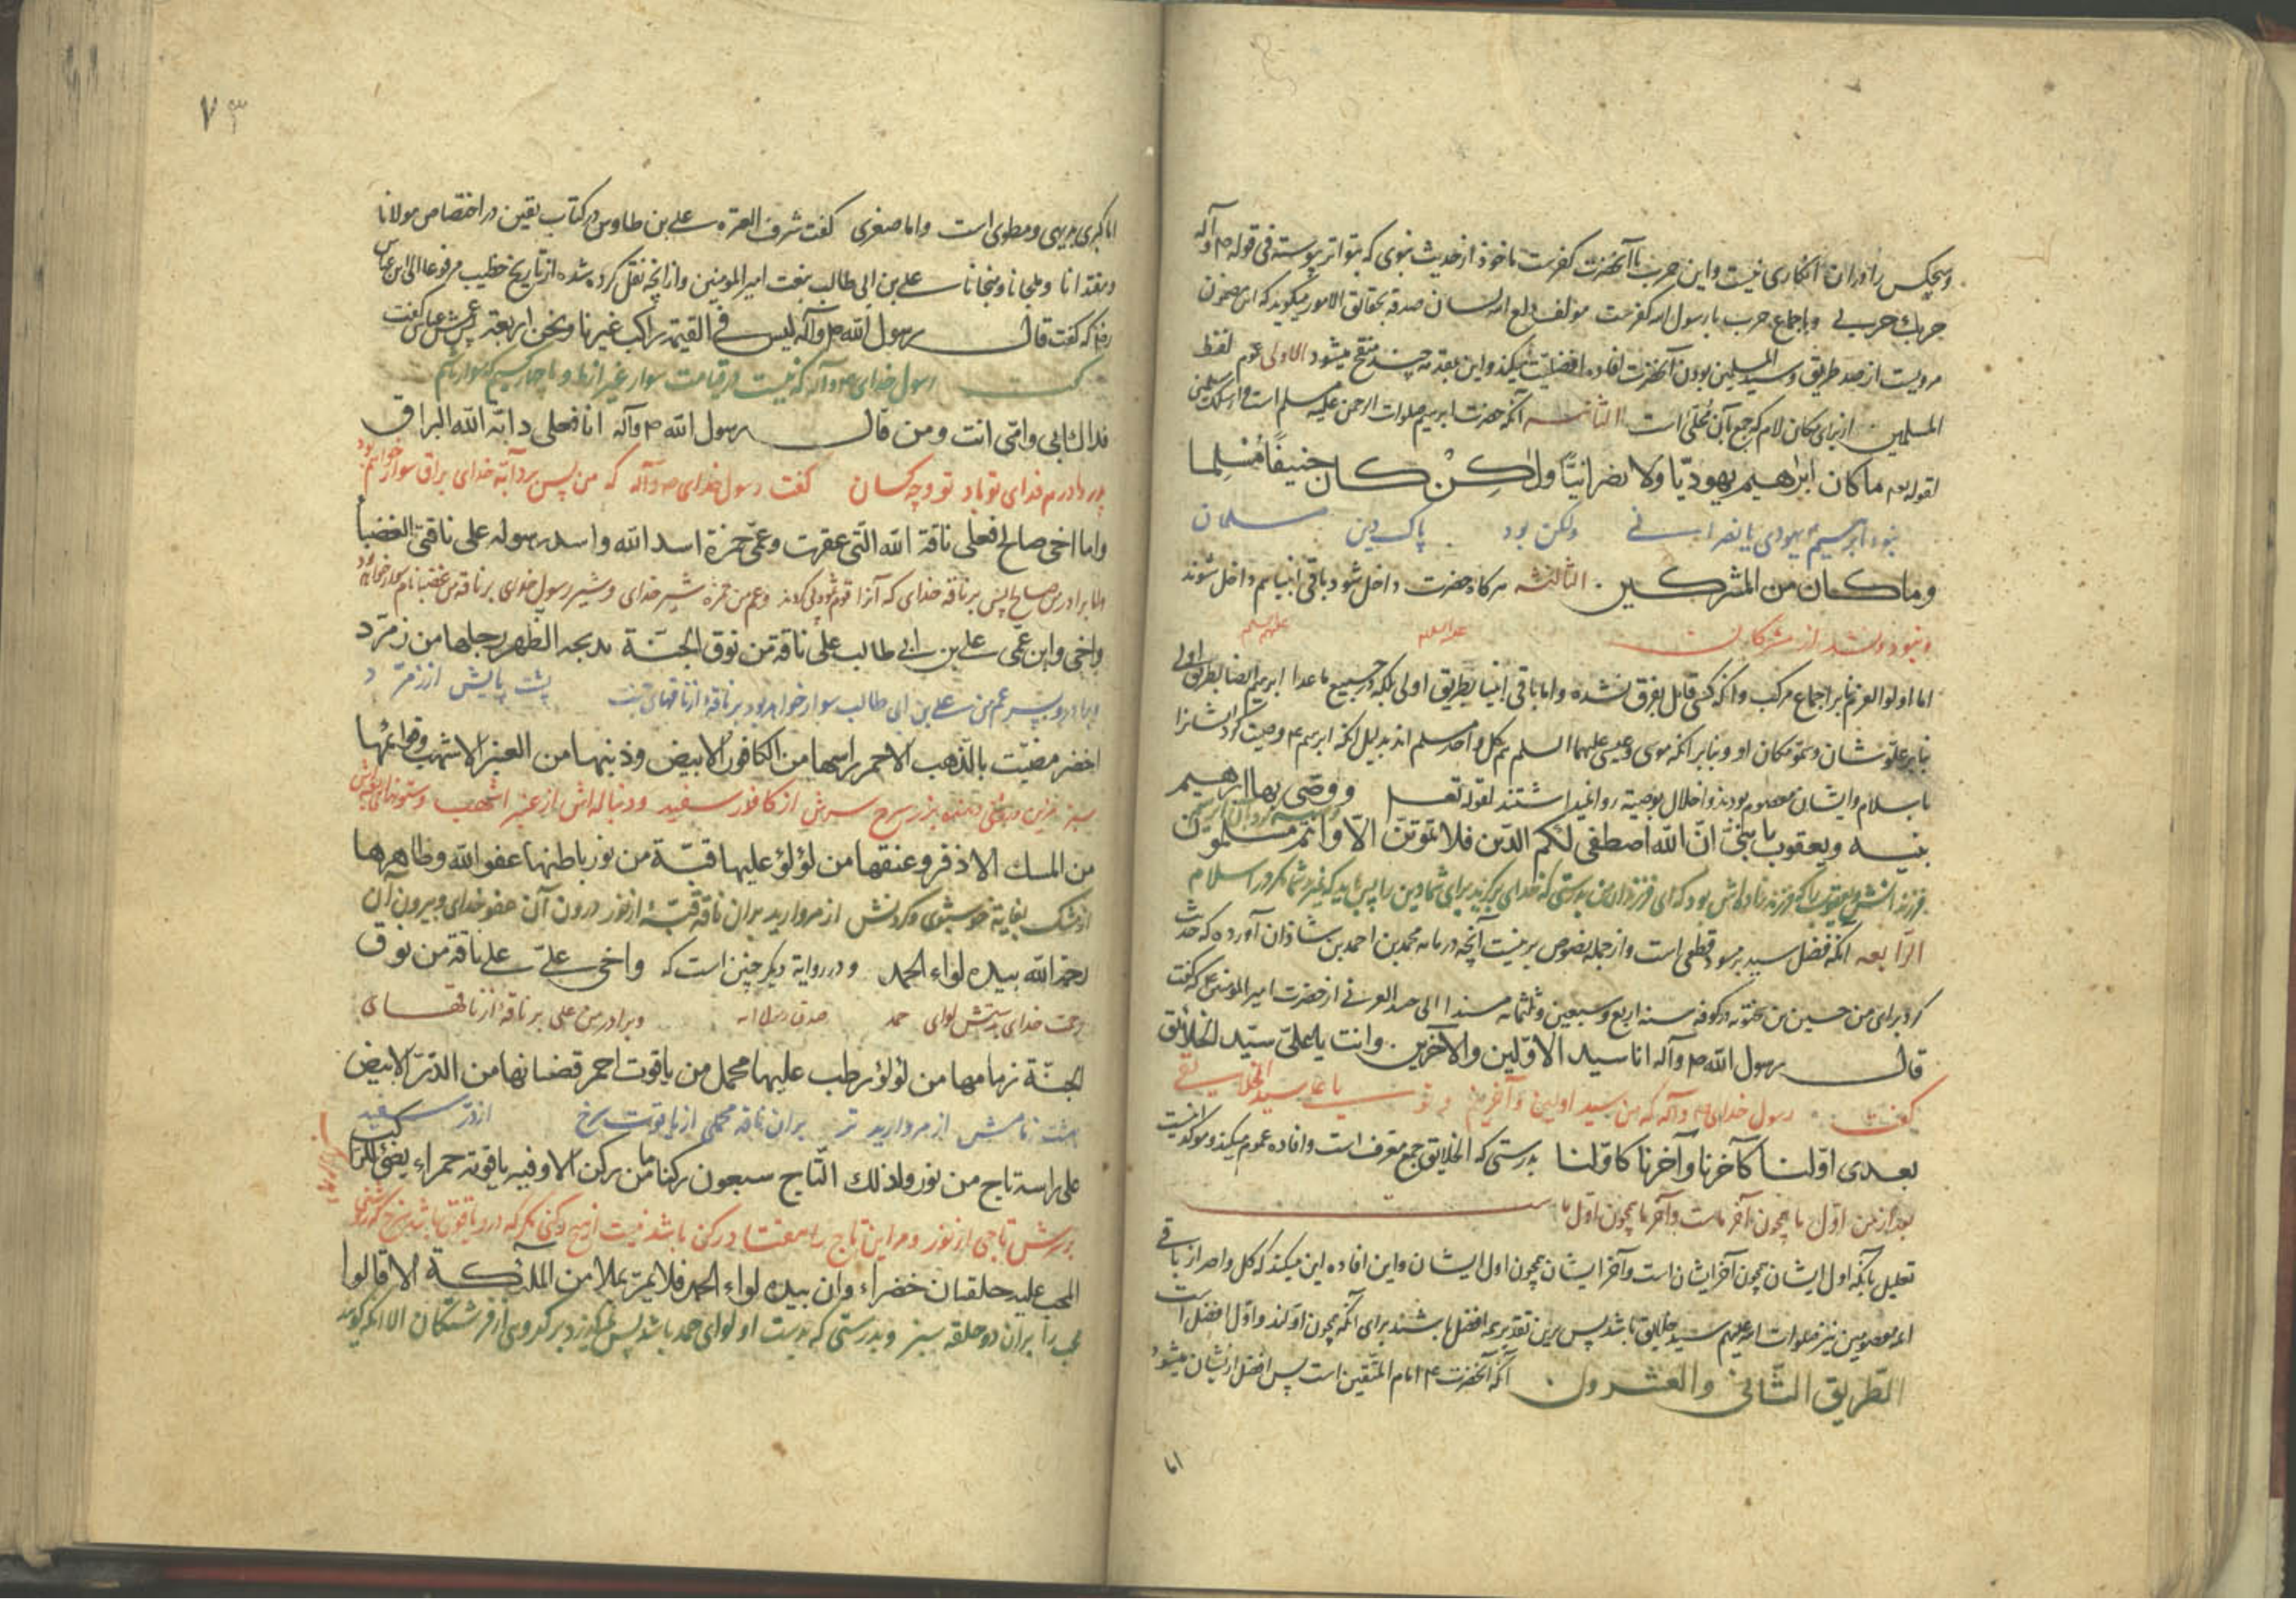 و هیچکس را در ان انکاری نیست و این حرب با آنحضرت کفرست ماخوذ از حدیث نبوی که بتواتر پیوسته فی قوله ص وآله
حربك حربی و باجماع حرب با رسول الله کفرست مولف گوید که این مضمون
مرویست از صد طریق و سید المسلمین بودن آنحضرت افاده افضلیت میکند و این بمقدمه چند منقح میشود الاولی عموم لفظ
المسلمین از برای مکان لام که جمع بآن محلی است الثانیه آنکه حضرت ابرهیم صلوات الرحمن علیه مسلم است
لقوله تعه ما كان ابرٰهيم يهوديّا ولا نصرانيّا ولٰكن كان حنيفًا مسلما
نبود ابرهیم یهودی یا نصرانی ولکن بود پاک دین مسلمان
وما كان من المشركين . الثالثه هر کاه حضرت داخل شود باقی انبیا هم داخل شوند
و نبود از مشرکان علیه السلم علیهم السلم
اما اولوالعزم بنابر اجماع مرکب و آنکه کسی قایل بفرق نشده و اما باقی انبیا بطریق اولی بلکه جمیع ماعدا ابرهیم ایضا بطریق اولی
بنابر علو شان و سمو مکان او و بنابر انکه موسی و عیسی علیهما السلم هم کل واحد مسلم اند بدلیل انکه ابرهیم ع وصیت کرد ایشانرا
باسلام و ایشان معصوم بودند و اخلال بوصیة روا نمیداشتند لقوله تعه ووصّى بها ابرهيم
بنيه ويعقوب يا بنىّ انّ الله اصطفى لكم الدّين فلا تموتنّ الّا وانتم مسلمون
الرّابعه انکه فضل سید بر مسود قطعی است و از جمله نصوص برینست آنچه در مایه محمد بن احمد بن شاذان آورده که حدیث
کرد برای من حسین بن در کوفه سنه اربع و سبعین و ثلثمائه مسندا الی از حضرت امیر المؤمنین ع که گفت
قال رسول الله ص وآله انا سيد الاوّلين والآخرين . وانت يا علىّ سيّد الخلائق
گفت رسول خدای ص وآله که من سید اولین و آخرینم و تو یا علی سید الخلایقی
بعدى اوّلنا كآخرنا وآخرنا كاوّلنا بدرستی که الخلایق جمع معرف است و افاده عموم میکند و موکد اینست
بعد از من اوّل ما همچون آخر ماست و آخر ما همچون اوّل ماست
تعلیل بآنکه اول ایشان همچون آخر ایشان است و آخر ایشان همچون اول ایشان و این افاده این میکند که کل واحد از باقی
ائمه معصومین نیز صلوات الله علیهم سید خلایق باشد پس برین تقدیر همه افضل باشند برای آنکه همچون اولند و اول افضل است
الطّريق الثّانى والعشرون . آنکه آنحضرت ع امام المتّقین است پس افضل از ایشان میشود
اما
۷۳
اما کبری بدیهی و مطوی است و اما صغری گفت شرف العترة علی بن طاوس در کتاب یقین در اختصاص مولانا
و مقتدانا و ملجانا و منجانا علی بن ابی طالب بنعت امیر المومنین و از آنچه نقل کرده شده از تاریخ خطیب مرفوعا الی ابن عباس
رض که گفت قال رسول الله ص وآله ليس فى القيمة راكب غيرنا ونحن اربعة
گفت رسول خدای ص وآله که نیست در قیامت سوار غیر از ما و ما چهار کسیم که سوار باشیم
فداك ابى وامّى انت ومن قال رسول الله ص وآله انا فعلى دابّة الله البراق
پدر و مادرم فدای تو باد تو و چه کسان گفت رسول خدای ص وآله که من پس بر دآبّه خدای براق سوار خواهم بود
واما اخى صالح فعلى ناقة الله الّتى عقرت وعمّى حمزة اسد الله واسد رسوله على ناقتى الغضبا
و اما برادر من صالح پس بر ناقه خدای که آنرا قوم ثمود پی کردند و عم من حمزه شیر خدای و شیر رسول خدای بر ناقه من غضبا نام سوار خواهد بود
واخى وابن عمّى على بن ابى طالب على ناقة من نوق الجنّة مدبجة الظّهر رجلها من زمرّد
و برادر و پسر عم من علی بن ابی طالب سوار خواهد بود بر ناقه از ناقهای بهشت پشت پایش از زمرّد
اخضر مضبّب بالذّهب الاحمر راسها من الكافور الابيض وذنبها من العنبر الاشهب وقوائمها
سبز بزر سرخ سرش از کافور سفید و دنباله اش از عنبر اشهب
من المسك الاذفر وعنقها من لؤلؤ عليها قبّة من نور باطنها عفو الله وظاهرها
از مشک بغایة خوشبوی و گردنش از مروارید بران ناقه قبّه از نور درون آن عفو خدای و بیرون آن
رحمة الله بيده لواء الحمد و در روایة دیگر چنین است که واخى علىّ على ناقة من نوق
رحمت خدای بدستش لوای حمد صدق رسول الله و برادر من علی بر ناقه از ناقهای
الجنّة زمامها من لؤلؤ رطب عليها محمل من ياقوت احمر قضبانها من الدّرّ الابيض
بهشت زمامش از مروارید تر بران ناقه محملی از یاقوت سرخ از درّ سفید
على راسه تاج من نور ولذلك التّاج سبعون ركنا ما من ركن الا وفيه ياقوتة حمراء يضئ للرّاكب
بر سرش تاجی از نور و مر این تاج را هفتاد رکن باشد نیست از هیچ رکنی مگر که در او یاقوتی باشد سرخ که روشنی
المحب عليه حلقتان خضراء وان بيده لواء الحمد فلا يمرّ بملا من الملائكة الا قالوا
بران دو حلقه سبز و بدرستی که بدست او لوای حمد باشد پس نمیگذرد بر گروهی از فرشتگان الا انکه گویند